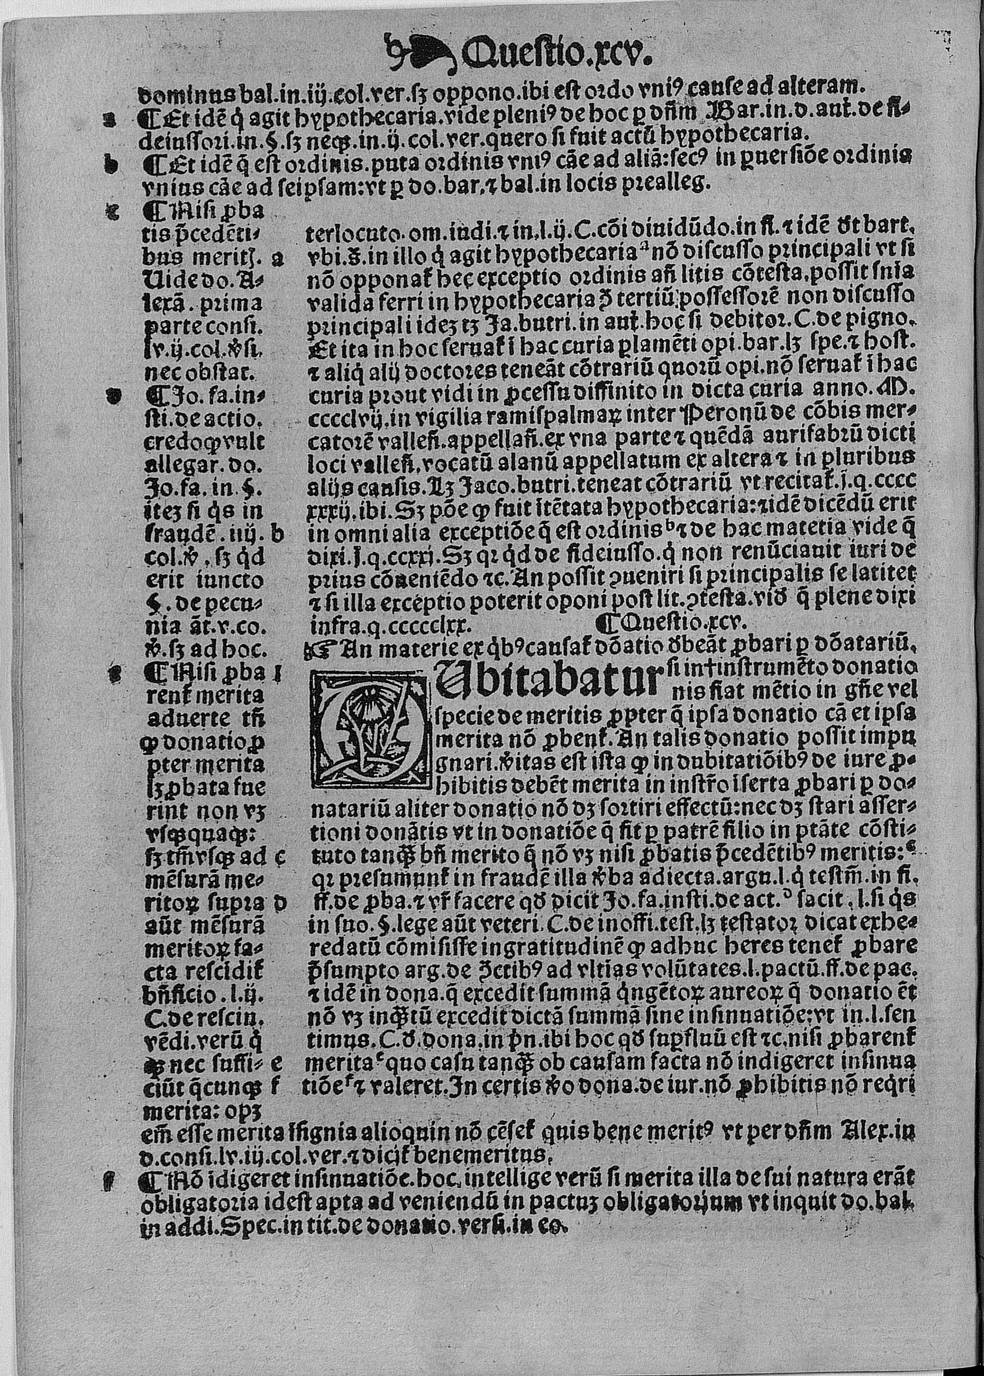 Questio.xcv.
dominus bal.in.iij.col.ver.sꝫ oppono.ibi est ordo vniꝰ cause ad alteram.
a ¶Et idē q̇ agit hypothecaria.vide pleniꝰ de hoc ꝑ dn̄m Bar.in.d.aut̄.de fi-
deiussori.in.§.sꝫ neqꝫ.in.ij.col.ver.quero si fuit actū hypothecaria.
b ¶Et idē q̄ est ordinis.puta ordinis vniꝰ cāe ad aliā:secꝰ in ꝑuersiōe ordinis
vnius cāe ad seipsam:vt ꝑ do.bar.⁊ bal.in locis prealleg.
c ¶Nisi ꝓba
tis p̄cedēti-
bus meritꝭ. a
Uide do. A-
lexā. prima
parte consi.
lv.ij.col.ꝟsi.
nec obstat.
¶Jo. fa. in-
sti. de actio.
credo ꝙ vult
allegar. do.
Jo. fa. in. §.
itez si q̇s in
fraudē. iiij. b
col.ꝟ. sꝫ q̇d
erit iuncto
§. de pecu-
nia āt.v.co.
ꝟ.sꝫ ad hoc.
e ¶Nisi ꝓba
renꝉ merita
aduerte tn̄
ꝙ donatio ꝓ
pter merita
lꝫ ꝓbata fue
rint non vꝫ
vsqꝫquaqꝫ:
sꝫ tm̄ vsqꝫ ad c
mēsurā me-
ritoꝝ supra d
aūt mēsurā
meritoꝝ fa-
cta rescidiꝉ
bn̄ficio .l.ij.
C. de rescin.
vēdi. verū q̇
qꝫ nec suffi- e
ciūt q̄cunqꝫ f
merita: opꝫ
terlocuto.om.iudi.⁊ in.l.ij.C.cōi diuidūdo.in fi.⁊ idē ꝺt bart.
vbi.s̄.in illo q̇ agit hypothecaria ᵃ nō discusso principali vt si
nō opponaꝉ hec exceptio ordinis an̄ litis cōtesta.possit sn̄ia
valida ferri in hypothecaria ꝯ̄ tertiū possessorē non discusso
principali idez tꝫ Ja.butri.in aut̄.hoc si debitor.C.de pigno.
Et ita in hoc seruaꝉ ī hac curia ꝑlamēti opi.bar.lꝫ spe.⁊ host.
⁊ aliq̇ alij doctores teneāt cōtrariū quorū opi.nō seruaꝉ ī hac
curia prout vidi in ꝓcessu diffinito in dicta curia anno. M.
cccclvij.in vigilia ramispalmaꝝ inter Peronū de cōbis mer-
catorē vallesi.appellan̄.ex vna parte ⁊ quēdā aurifabrū dicti
loci vallesi.vocatū alanū appellatum ex altera ⁊ in pluribus
alijs causis.Lꝫ Jaco.butri.teneat cōtrariū vt recitaꝉ.j.q.cccc
xxxij.ibi. Sꝫ pōe ꝙ fuit ītētata hypothecaria:⁊ idē dicēdū erit
in omni alia exceptiōe q̄ est ordinis ᵇ ⁊ de hac matetia vide q̄
dixi.j.q.ccxxj. Sꝫ qr q̇d de fideiusso.q̇ non renūciauit iuri de
prius cōueniēdo ⁊c. An possit ꝯueniri si principalis se latitet
⁊ si illa exceptio poterit oponi post lit.ꝯtesta.vid̄ q̄ plene dixi
infra.q.ccccclxx. ¶Questio.xcv.
☞ An materie ex q̇bꝰ causaꝉ dōatio ꝺbeāt ꝓbari ꝑ dōatariū.
Ubitabatur si in instrumēto donatio
nis fiat mētio in gn̄e vel
specie de meritis ꝓpter q̄ ipsa donatio cā et ipsa
merita nō ꝓbenꝉ. An talis donatio possit impu
gnari.ꝟitas est ista ꝙ in dubitatiōibꝰ de iure ꝓ-
hibitis debēt merita in instr̄o īserta ꝓbari ꝑ do-
natariū aliter donatio nō dꝫ sortiri effectū:nec dꝫ stari asser-
tioni donātis vt in donatiōe q̄ fit ꝑ patrē filio in ptāte cōsti-
tuto tanqꝫ bn̄ merito q̄ nō vꝫ nisi ꝓbatis p̄cedētibꝰ meritis: ᶜ
qr presumunꝉ in fraudē illa ꝟba adiecta.argu.l.q̇ testm̄.in fi.
ff.de ꝓba.⁊ vr̄ facere qd̄ dicit Jo.fa.insti.de act. ᵈ facit .l.si q̇s
in suo.§.lege aūt veteri.C.de inoffi.test.lꝫ testator dicat exhe-
redatū cōmisisse ingratitudinē ꝙ adhuc heres teneꝉ ꝓbare
p̄sumpto arg.de ꝯ̄ctibꝰ ad vltīas volūtates.l.pactū.ff.de pac.
⁊ idē in dona.q̄ excedit summā q̇ngētoꝝ aureoꝝ q̄ donatio ēt
nō vꝫ inqꝫtū excedit dictā summā sine insinuatiōe:vt in.l.sen
timus.C.ꝺ.dona.in pn̄.ibi hoc qd̄ suꝑfluū est ⁊c.nisi ꝓbarenꝉ
merita ᵉ quo casu tanqꝫ ob causam facta nō indigeret insinua
tiōe ᶠ ⁊ valeret. In certis ꝟo dona.de iur.nō ꝓhibitis nō reqri
em̄ esse merita īsignia alioquin nō cēseꝉ quis bene meritꝰ vt per dn̄m Alex.in
d.consi.lv.iij.col.ver.⁊ diciꝉ benemeritus.
f ¶Nō īdigeret insinuatiōe.hoc.intellige verū si merita illa de sui natura erāt
obligatoria idest apta ad veniendū in pactuz obligatorium vt inquit do.bal.
in addi. Spec.in tit.de donatio.versi.in eo.